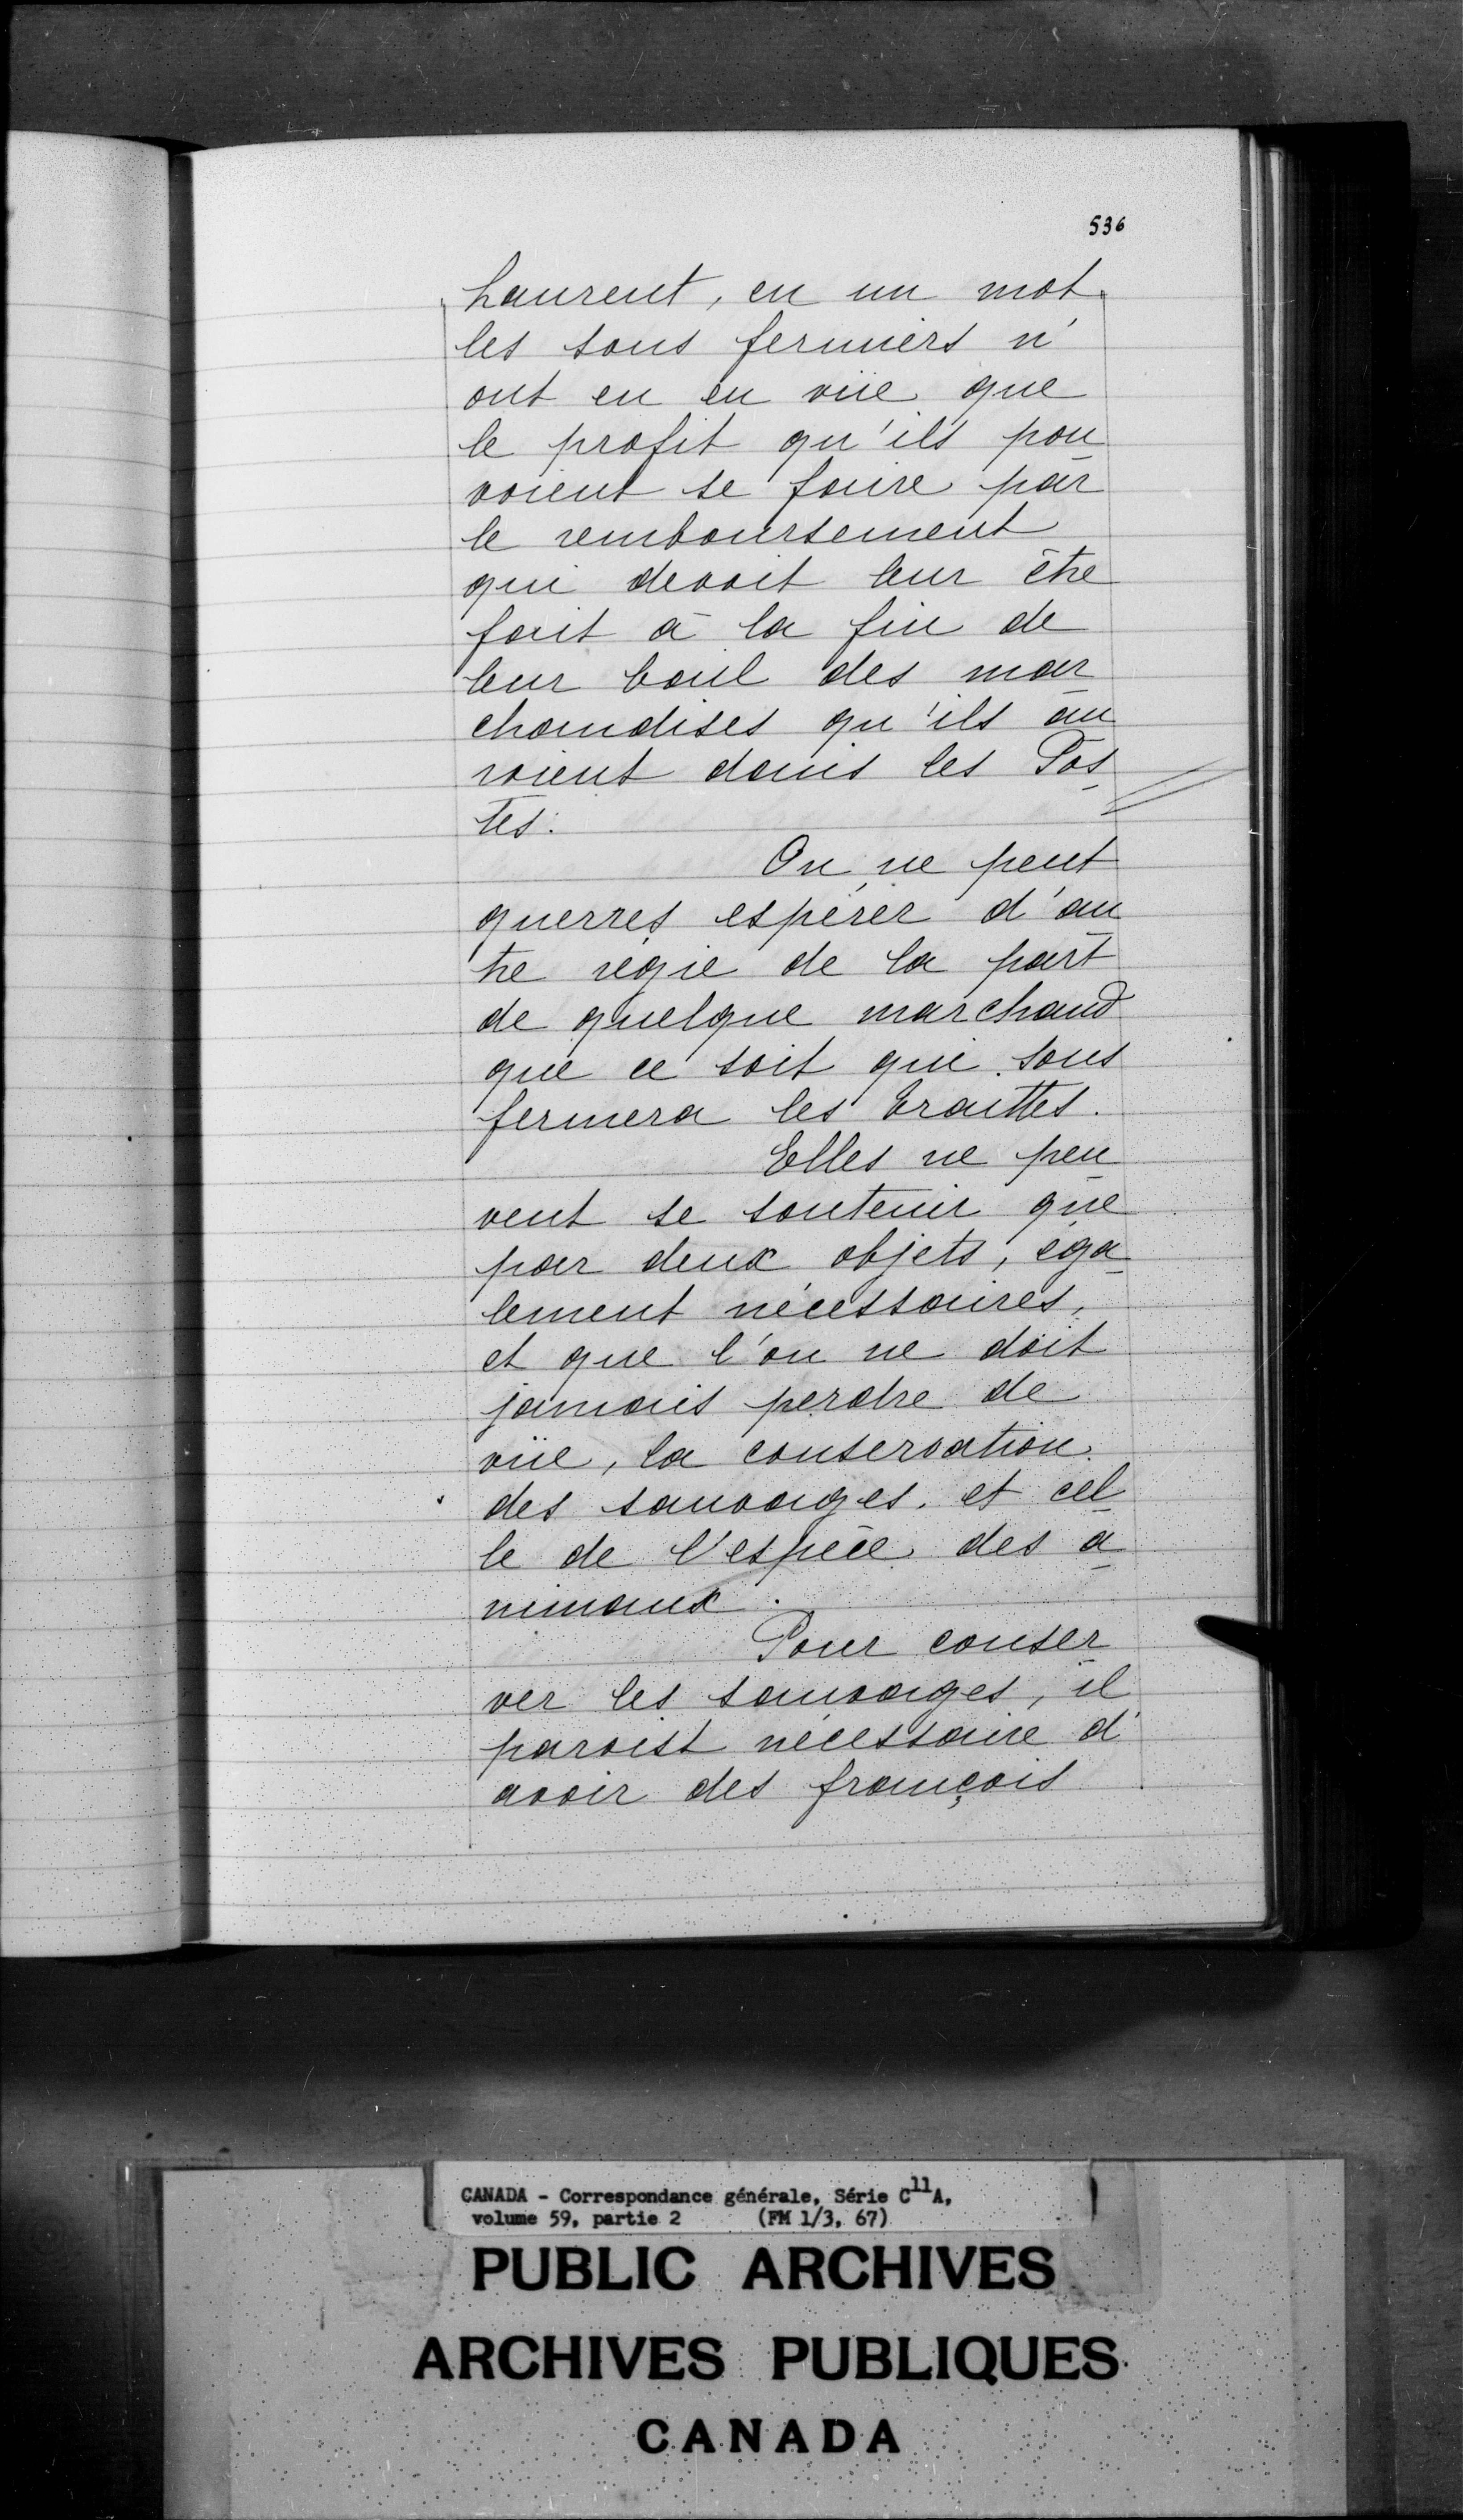 536
Laurent, en un mot
les sous fermiers n'
ont eu en vüe que
le profit qu'ils pou
voient se faire par
le remboursement
qui devoit leur être
fait à la fin de
leur bail des mar
chandises qu'ils au
roient dans les Pos
tes.
On ne peut
guerres espérer d'au
tre régie de la part
de quelque marchand
que ce soit qui sous
fermera les traittes.
Elles ne peu
vent se soutenir que
par deux objets, éga
lement nécessaires,
et que l'on ne doit
jamais perdre de
vüe, la conservation
des sauvages, et cel
le de l'espèce des a
nimaux.
Pour conser
ver les sauvages, il
paroist nécessaire d'
avoir des françois
CANADA - Correspondance générale, Série C11A,
volume 59, partie 2 (FM 1/3, 67)
PUBLIC ARCHIVES
ARCHIVES PUBLIQUES
CANADA